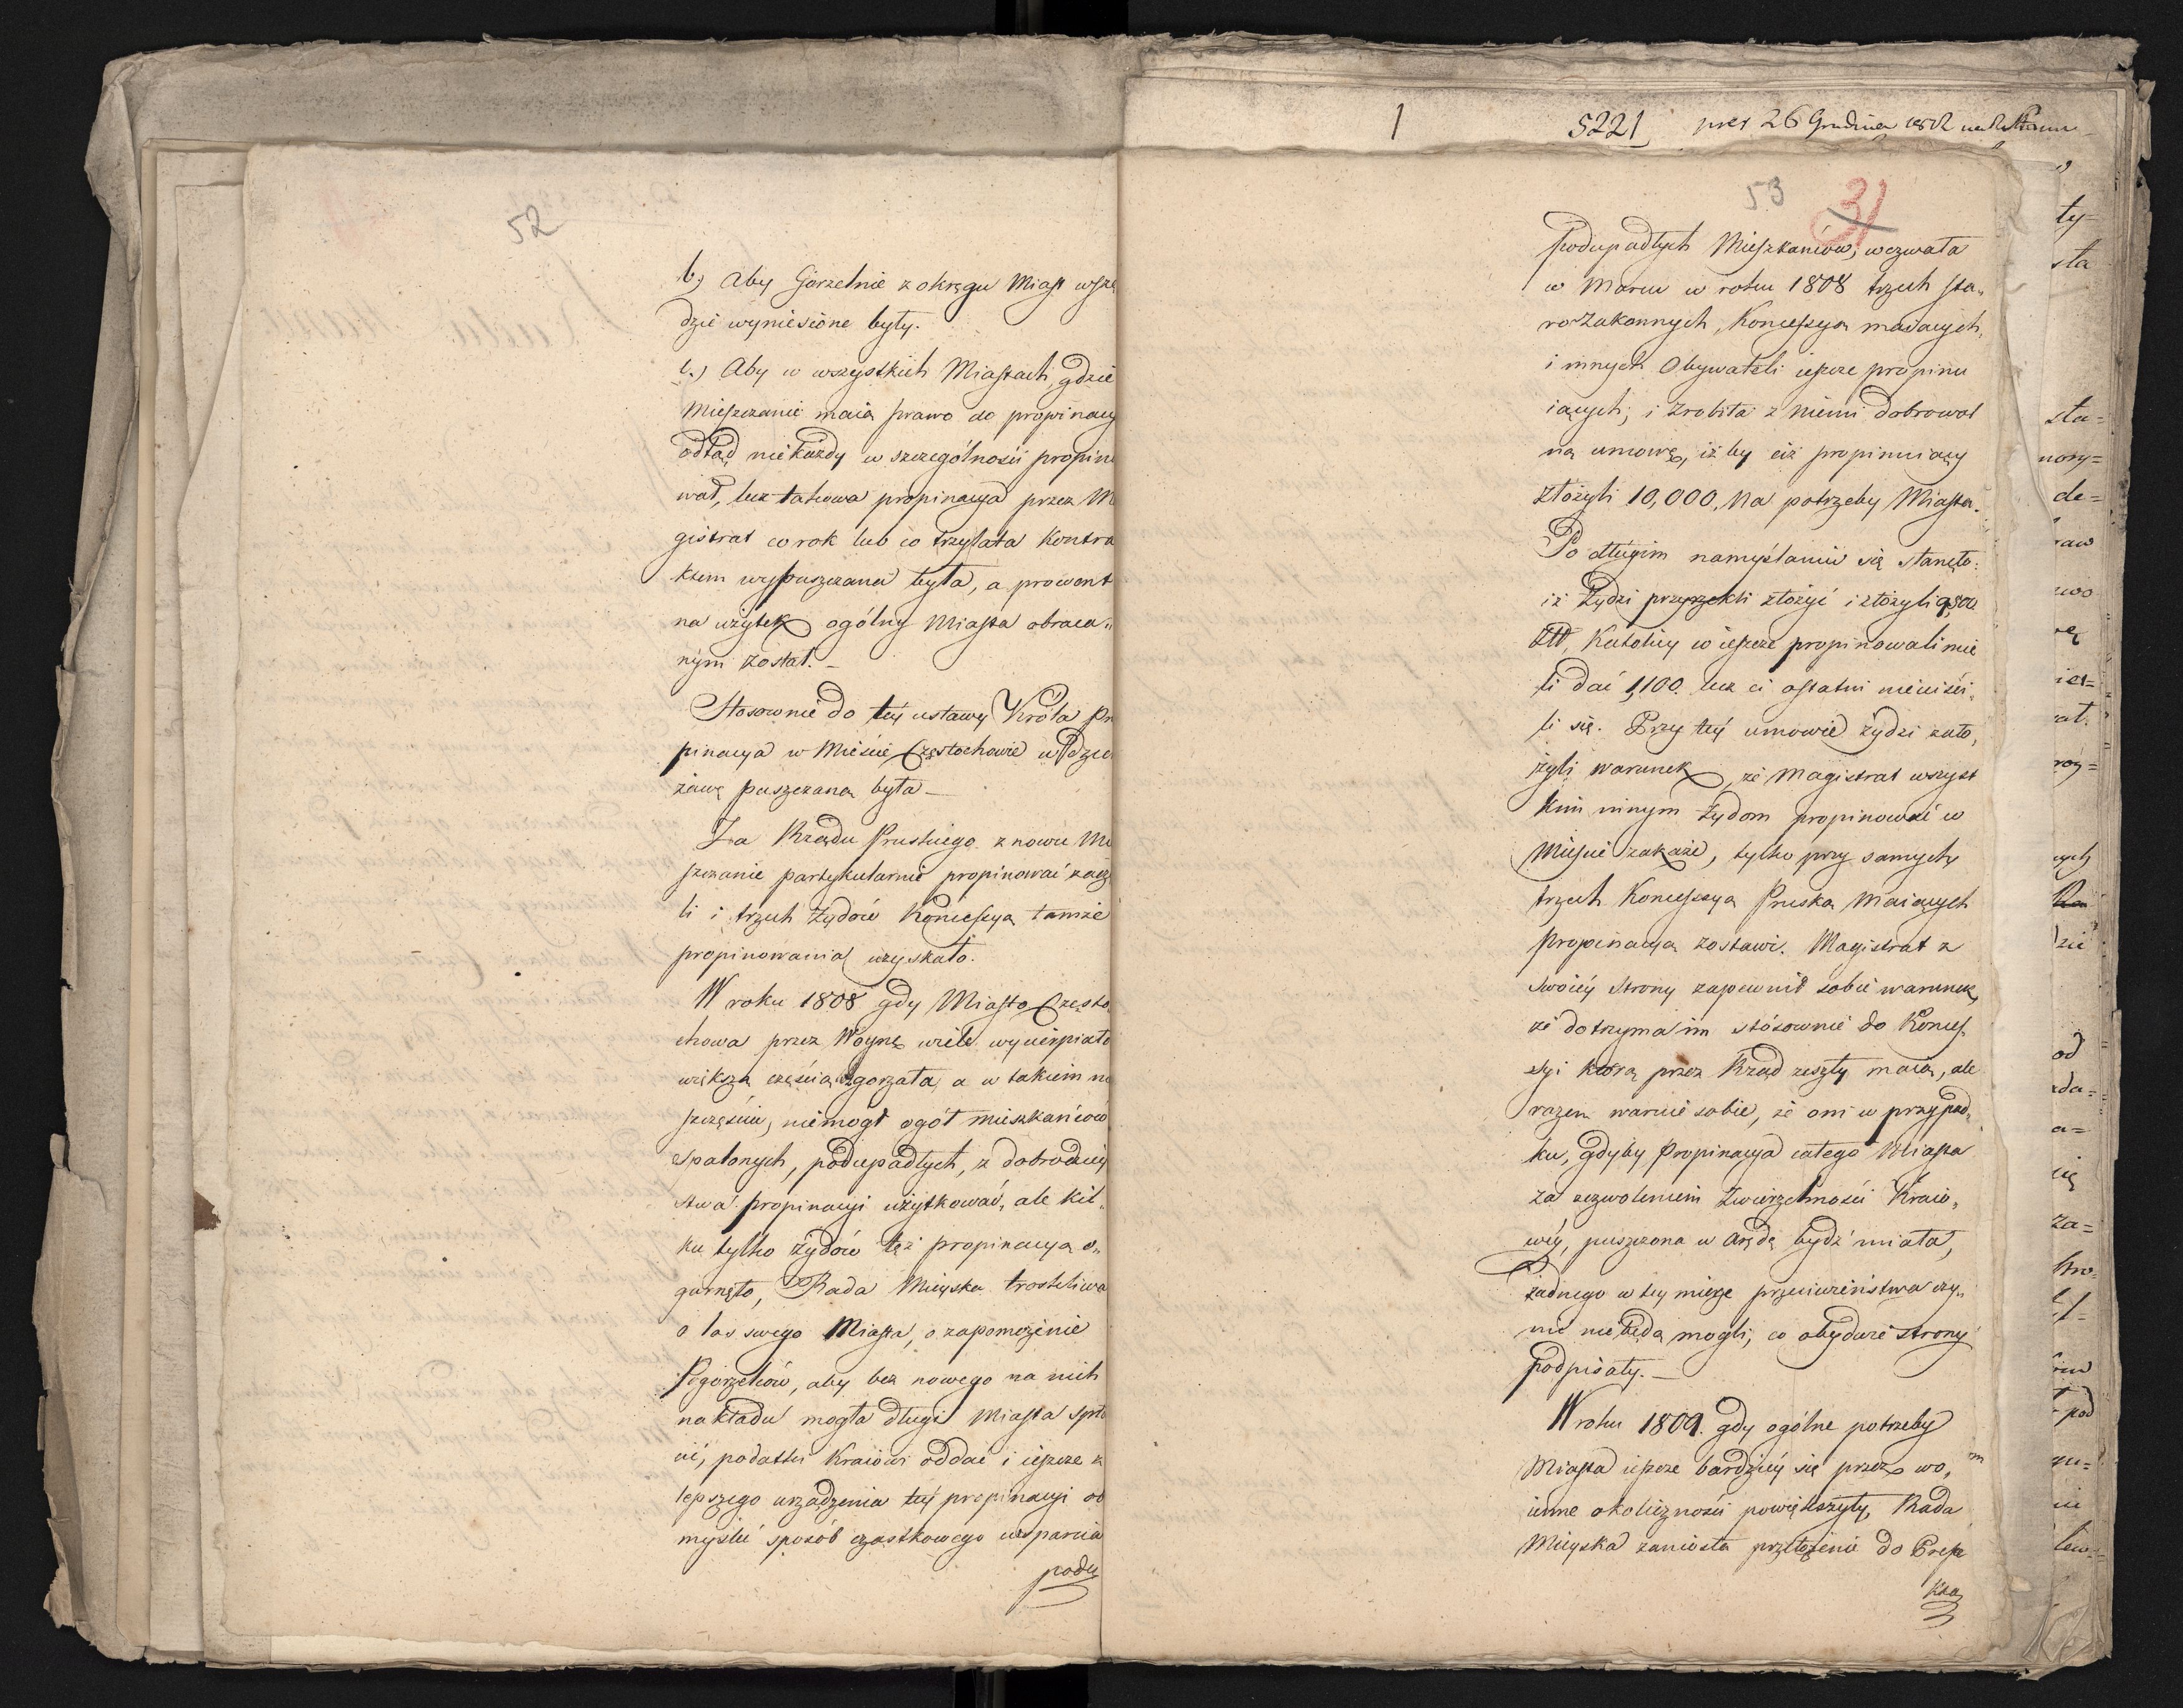 52
b.) Aby Gorzelnie z okręgu Miast wszę
dzie wyniesione były.
c.) Aby w wszystkich Miastach, gdzie
Mieszczanie maią prawo do propinacy
odtąd nie każdy w szczególności propino
wał, lecz takowa propinacya przez Ma
gistrat co rok lub co trzy lata kontra
ktem wypuszczana była, a prowent
na użytek ogólny Miasta obraca„
nym został. –
Stosownie do tey ustawy Króla Pro
pinacya w Mieście Częstochowie w Dzier
żawę puszczana była –
Za Rządu Pruskiego znowu Mie
szczanie partykularnie propinować zaczę
li i trzech Żydów Koncessyą tamże
propinowania uzyskało.
W roku 1808 gdy Miasto Często
chowa przez Woynę wiele wycierpiało
większą częścią zgorzała, a w takiem nie
szczęściu, niemogł ogół mieszkańców
spalonych, podupadłych, z dobrodziey
stwa propinacyi użytkować, ale kil„
ku tylko Żydów też propinacyą o„
garnęło, Rada Mieyska troskliwa
o los swego Miasta, o zapomożenie
Pogorzelców, aby bez nowego na nich
nakładu mogła długi Miasta spła
cić, podatki Kraiowi oddać i ieszcze z
lepszego urządzenia tey propinacyi ob
myślić sposób cząstkowego wsparcia
podu
1
5221
pres 26 Grudnia
53
31
podupadłych Mieszkańców, wezwała
w Marcu w roku 1808 trzech sta„
rozakonnych, Koncessyą maiących,
i innych Obywateli ieszcze propinu
iących, i zrobiła z niemi dobrowol
ną umowę, iż by ciż propinuiący
złożyli 10,000, na potrzeby Miasta.
Po długim namyślaniu się stanęło:
iż Żydzi przyrzekli złożyć i złożyli 9,800
Złł, Katolicy co ieszcze propinowali mie
li dać 1,100. lecz ci ostatni nieuiści„
li się. Przy tey umowie żydzi zało„
żyli warunek, że Magistrat wszyst
kim innym Żydom propinować w
Mieście zakaże, tylko przy samych
trzech Koncessyą Pruską Maiących
Propinacyą zostawi. Magistrat z
swoiéy strony zapewnił sobie warunek,
że dotrzyma im stósownie do Konces„
syi którą przez Rząd zeszły maią, ale
razem waruie sobie, że oni w przypad„
ku, gdyby Propinacya całego Miasta
za zezwoleniem Zwierzchności Kraio„
wéy, puszczona w Arędę bydź miała,
żadnego w tey mierze przeciwieństwa czy„
nić nie będą mogli, co obydwie strony
podpisały. –
W roku 1809. gdy ogólne potrzeby
Miasta ieszcze bardziéy się przez wo„
ienne okoliczności powiększyły, Rada
Mieyska zaniosła przełożenie do Prefe
kta